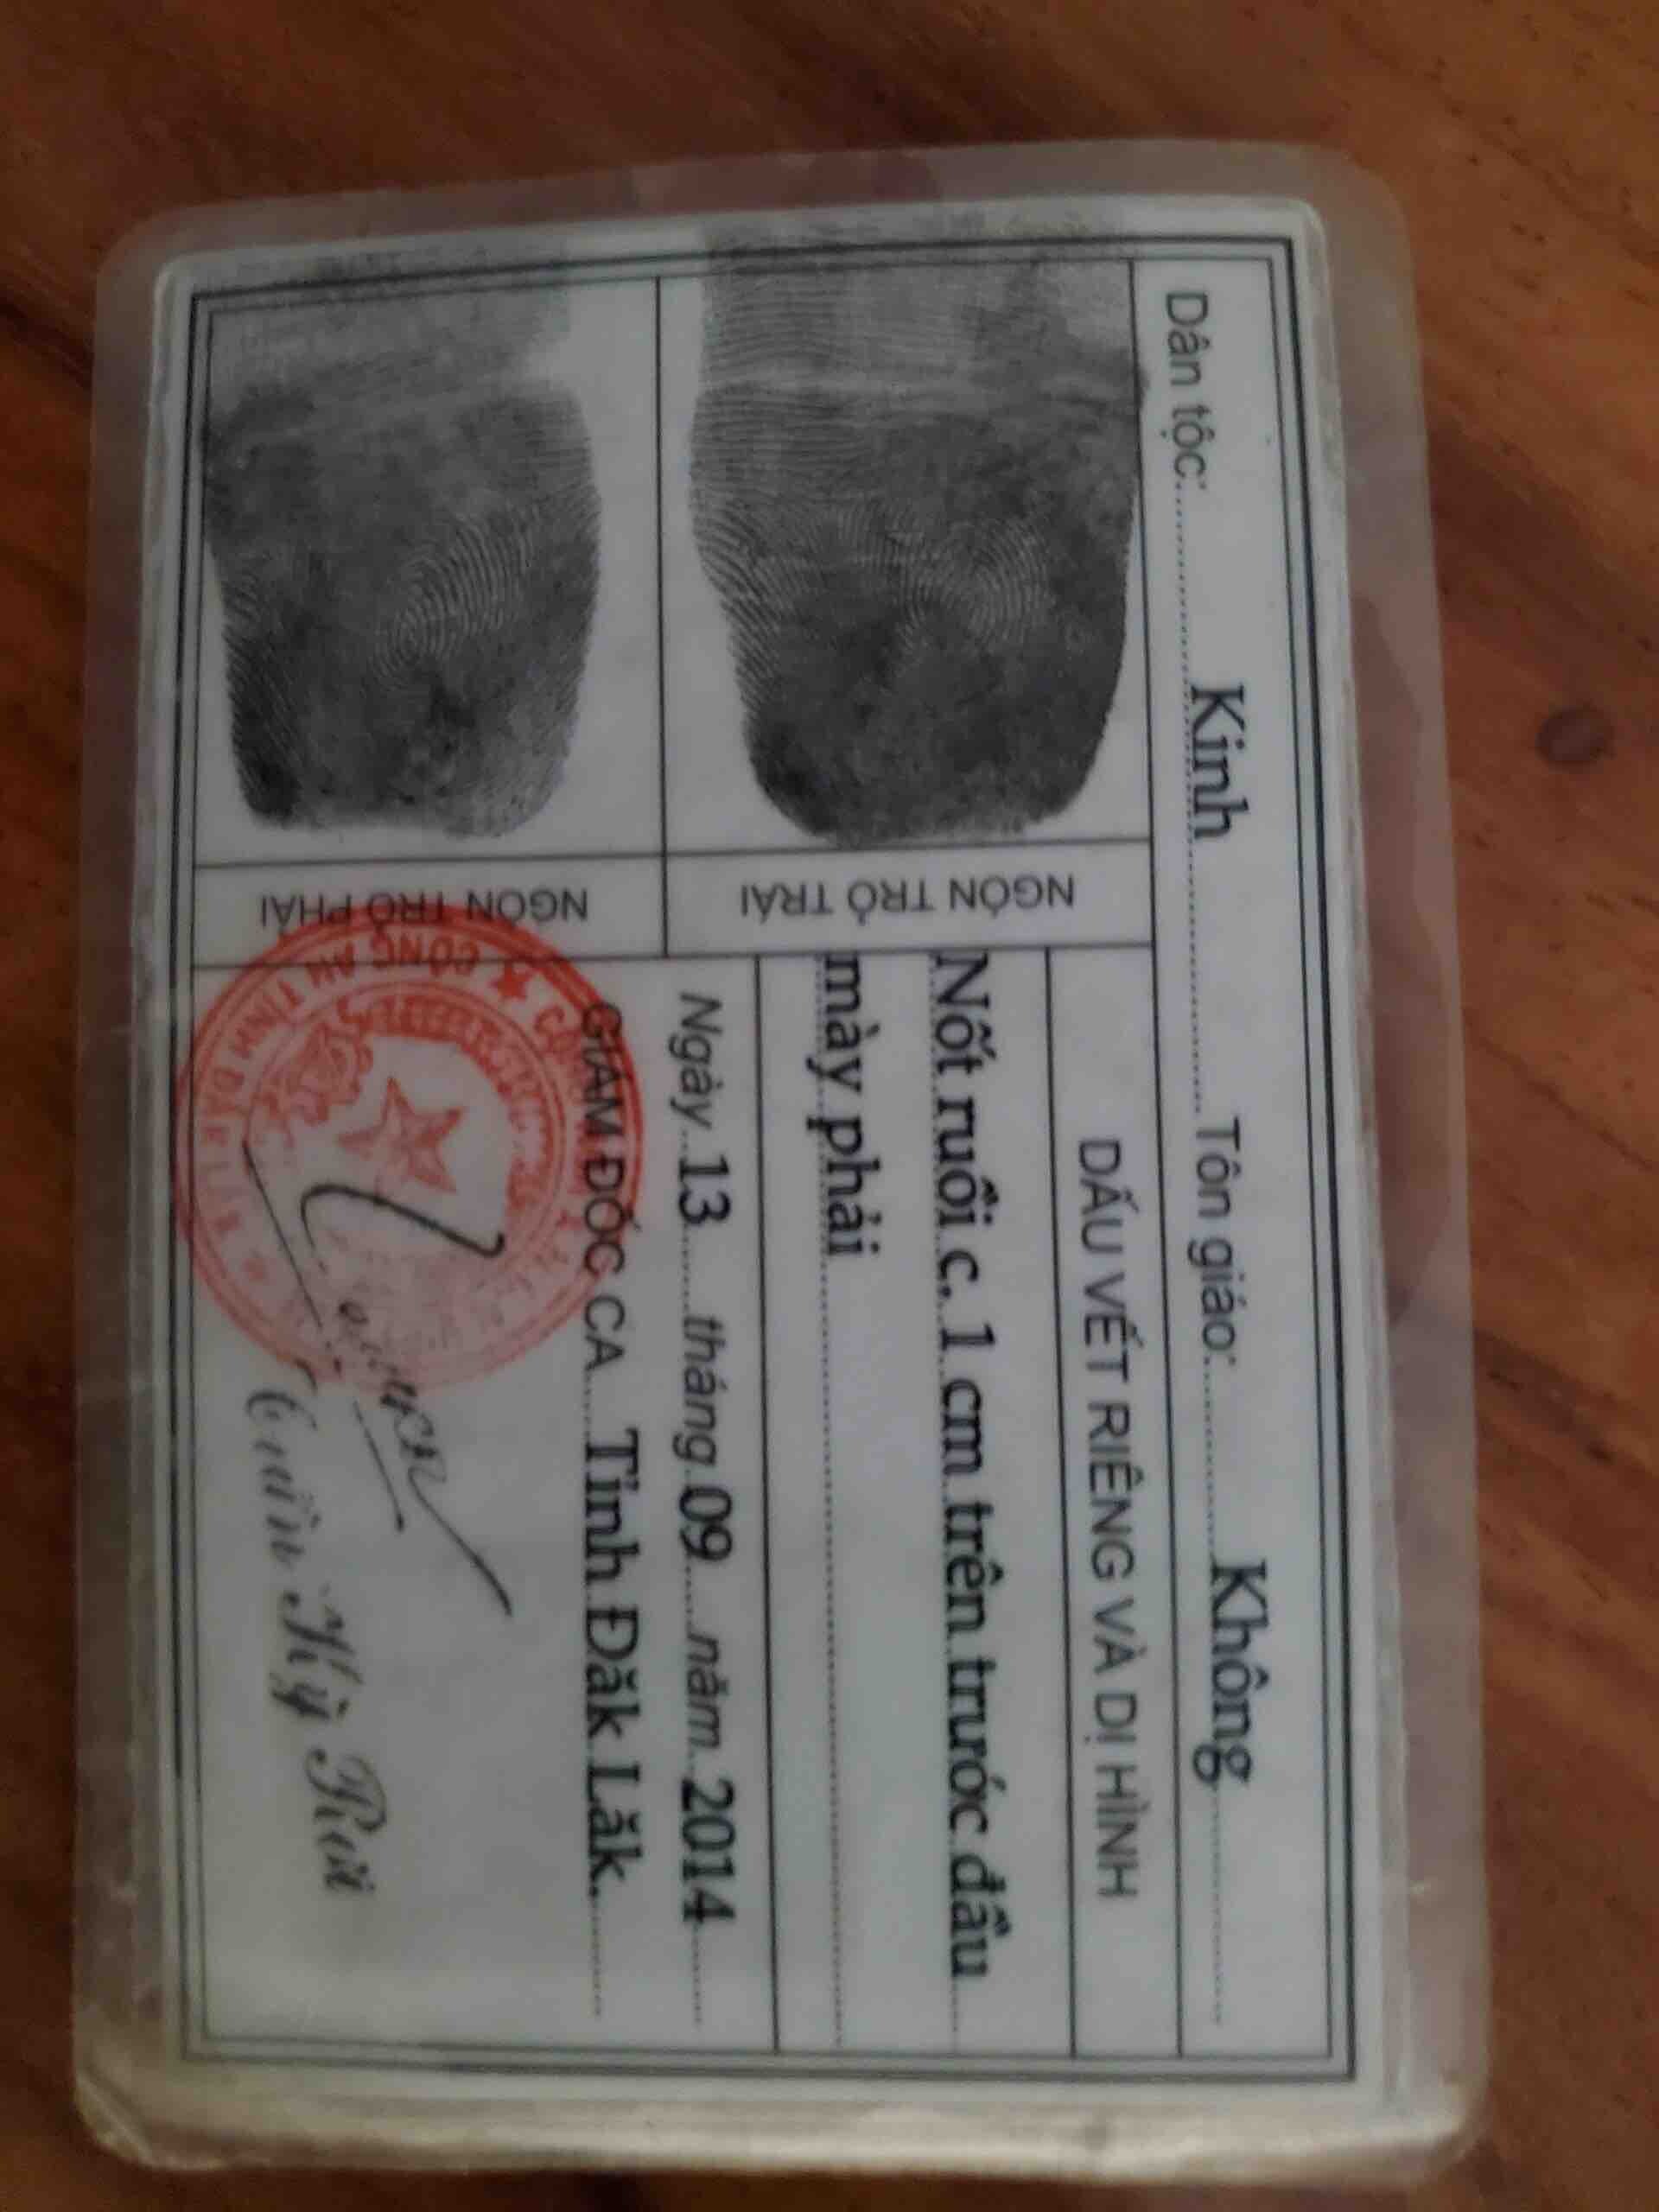 Dân tộc: Kinh Tôn giáo: Không
DẤU VẾT RIÊNG VÀ DỊ HÌNH
Nốt ruồi c. 1 cm trên trước đầu
mày phải
NGÓN TRỎ TRÁI
NGÓN TRỎ PHẢI
Ngày 13 tháng 09 năm 2014
GIÁM ĐỐC CA Tỉnh Đăk Lăk
CÔNG AN TỈNH ĐĂK LĂK
Kỳ Rơi